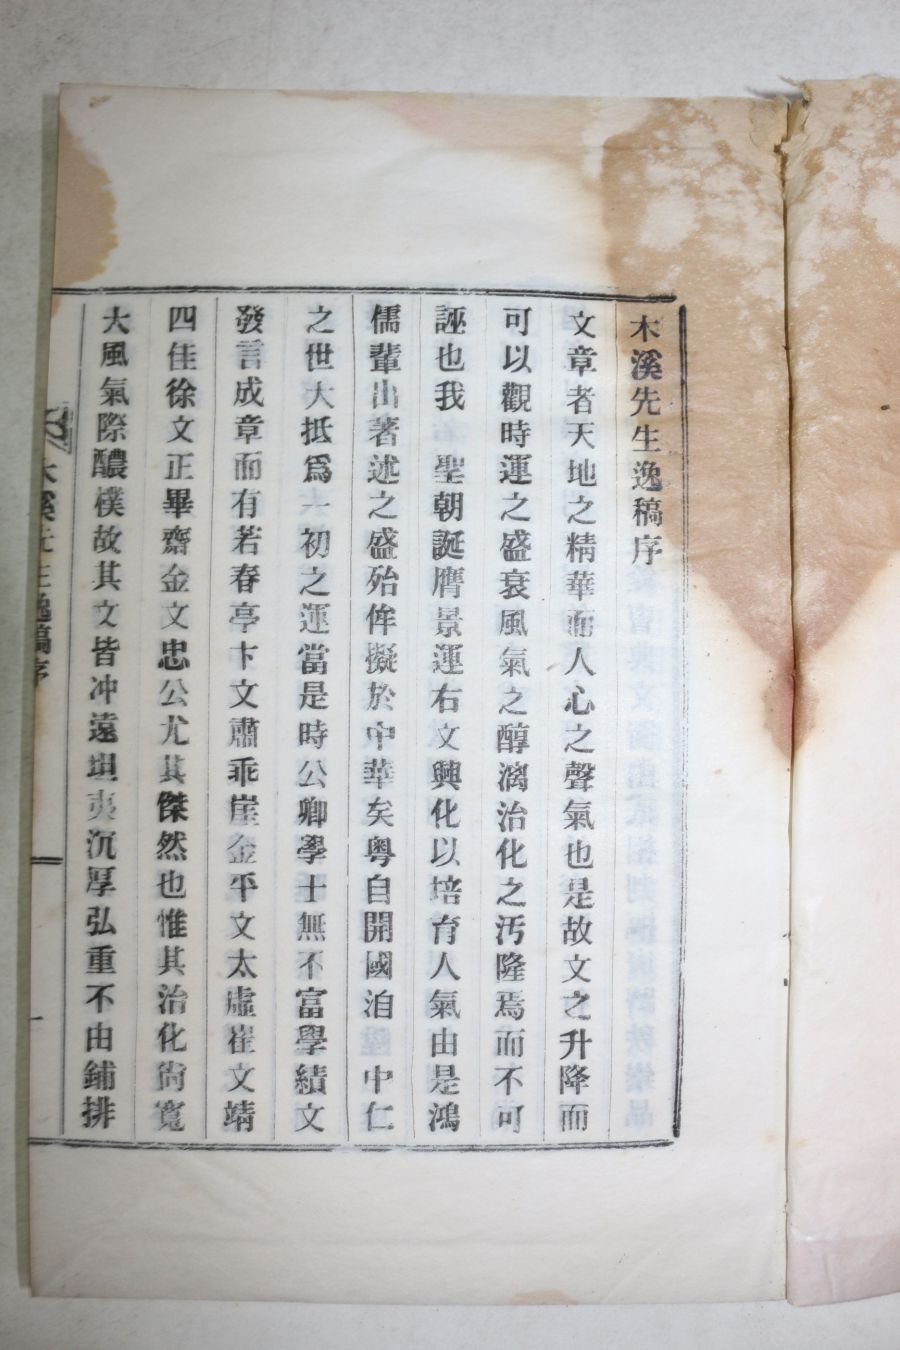 木溪先生逸稿序
文章者天地之精華而人心之聲氣也是故文之升降而
可以觀時運之盛衰風氣之醇漓治化之汚隆焉而不可
誣也我 聖朝誕膺景運右文興化以培育人氣由是鴻
儒輩出著述之盛殆侔擬於中華矣粤自開國洎 中仁
之世大抵爲一初之運當是時公卿學士無不富學績文
發言成章而有若春亭卞文肅乖崖金平文太虛崔文靖
四佳徐文正畢齋金文忠公尤其傑然也惟其治化尙寬
大風氣際醲樸故其文皆冲遠坦夷沉厚弘重不由鋪排
木溪先生逸稿序